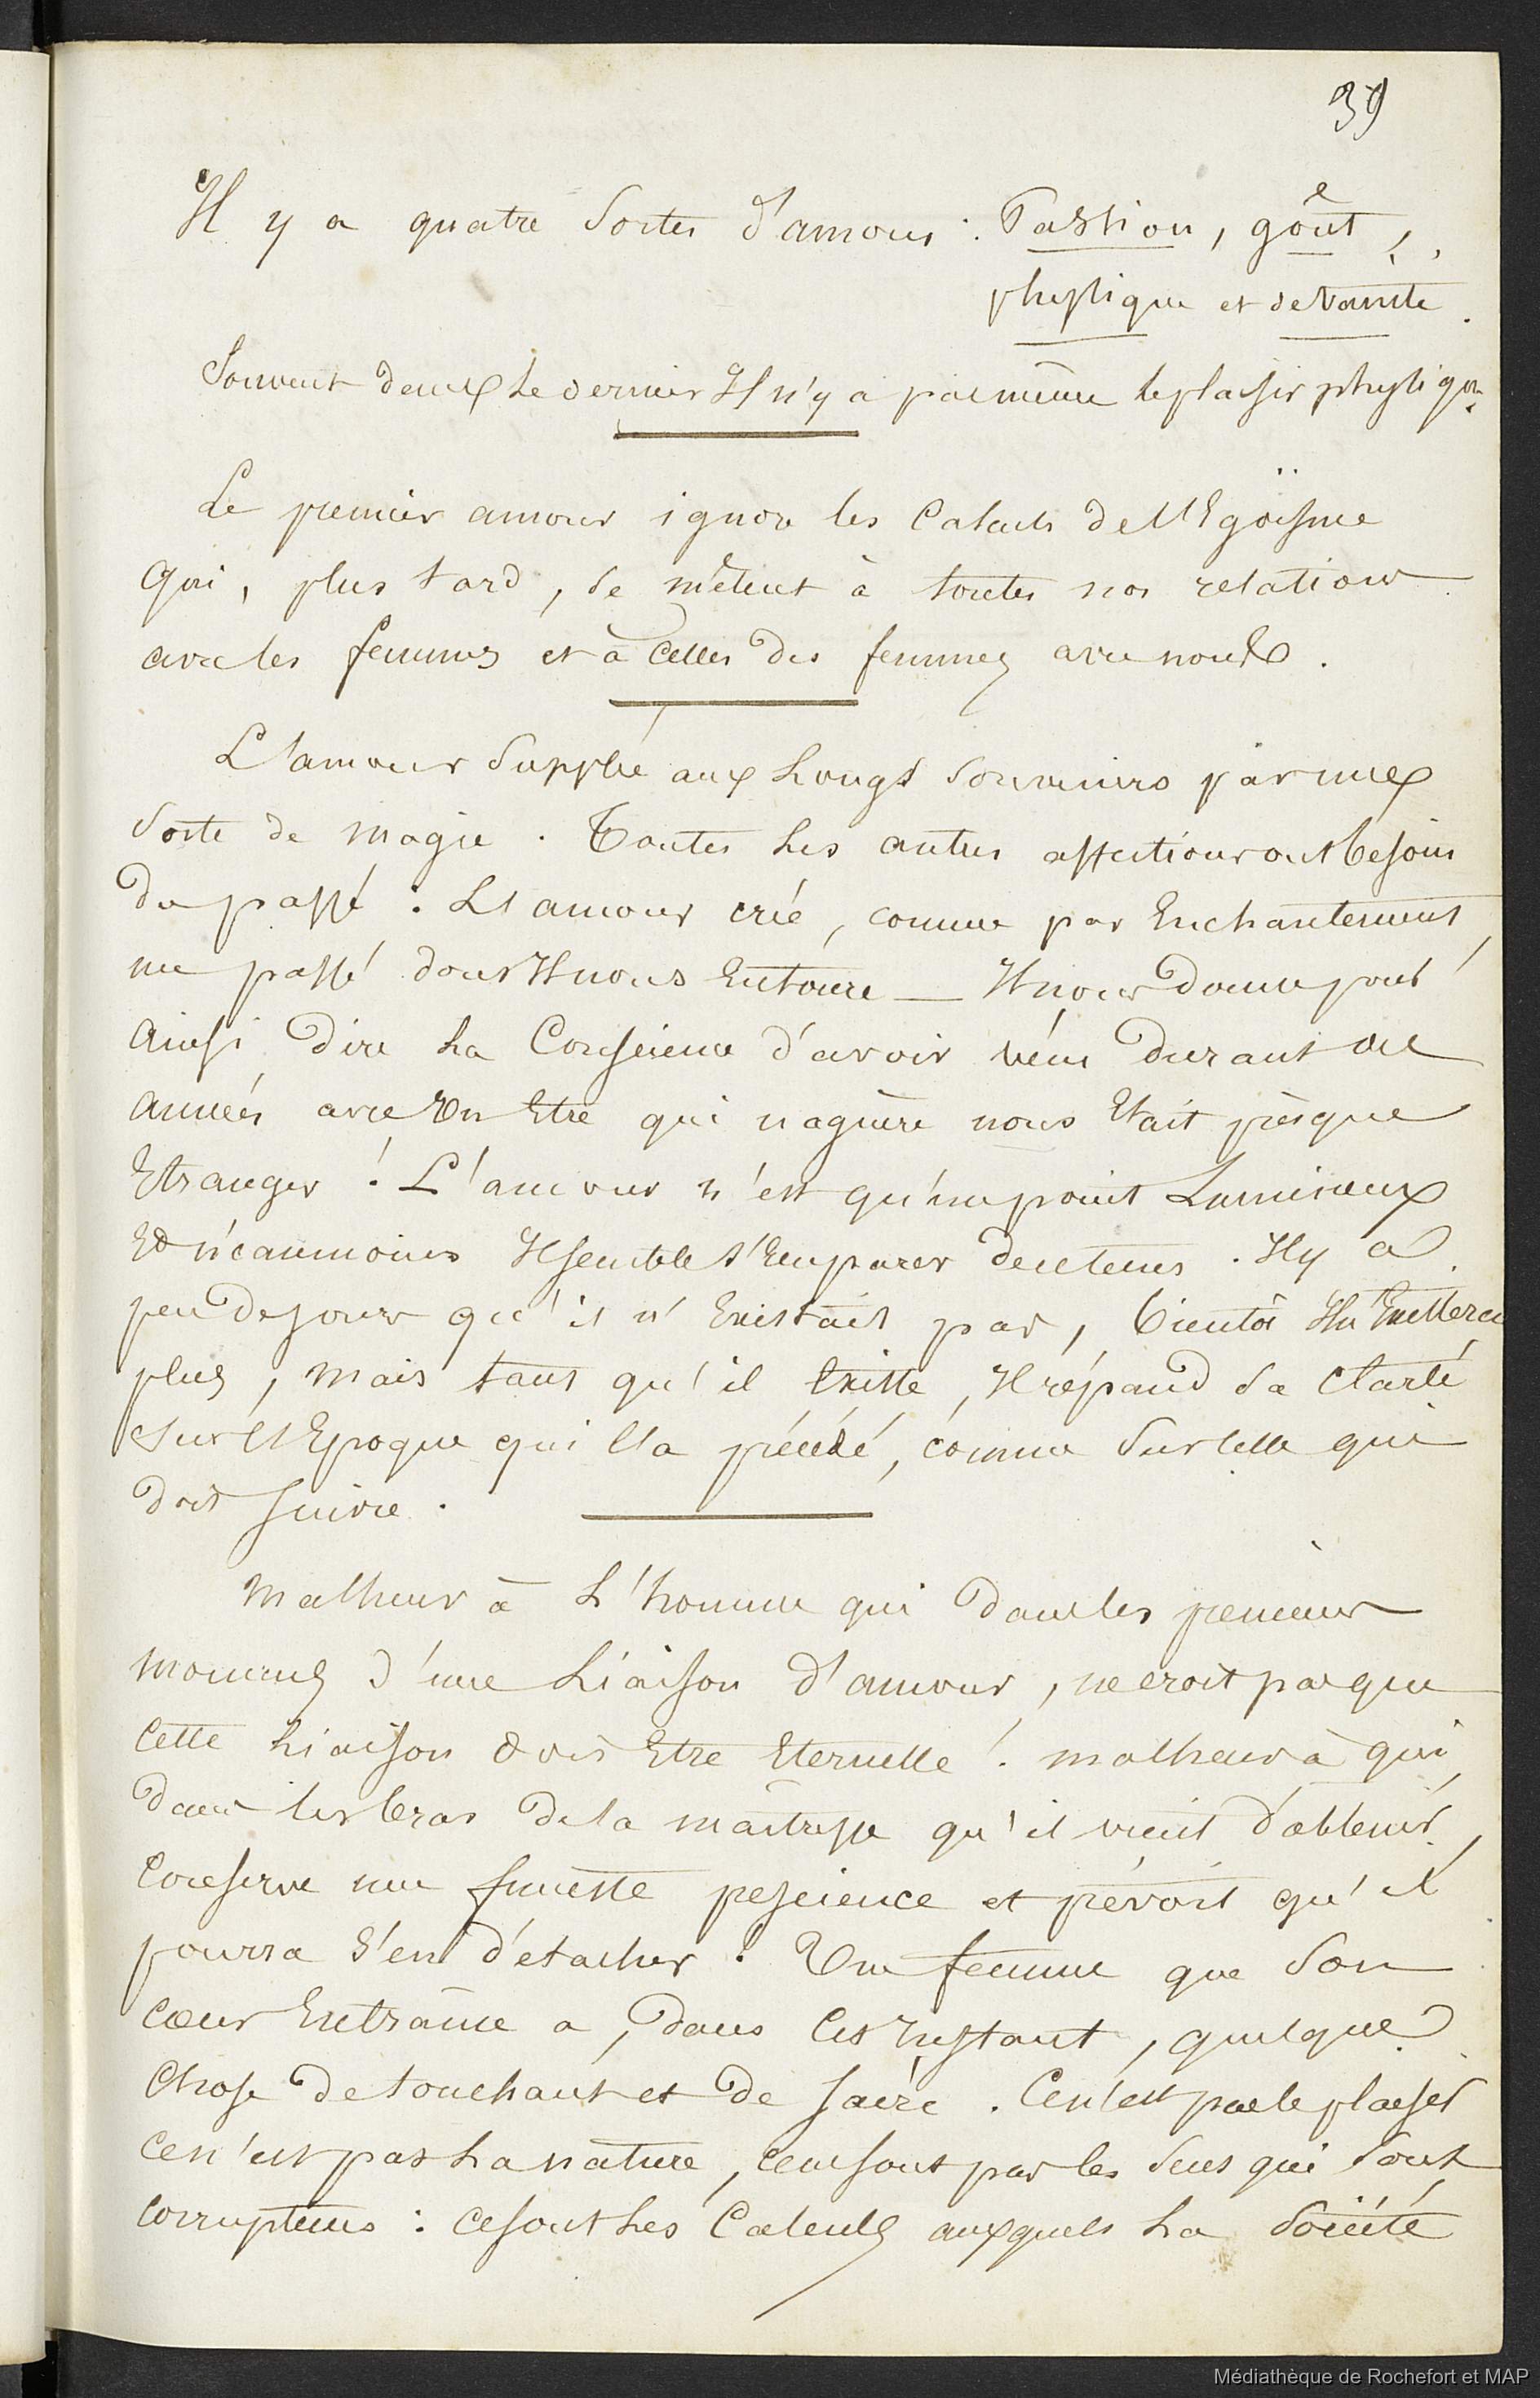 39
Il y a quatre Sortes d'amours : Passion, goût,
physique et de Vanité.
Souvent dans Le dernier Il n'y a pas même le plaisir physique.
Le premier amour ignore les Calculs de l'Egoïsme
qui, plus tard, se mêlent à toutes nos relations
avec les femmes et à Celles des femmes avec nous.
L'amour Supplée aux Longs Souvenirs par une
Sorte de magie. Toutes Les autres affections ont besoin
du passé : L'amour crée, comme par Enchantement,
un passé dont Il nous Entoure — Il nous donne pour
Ainsi Dire La Conscience d'avoir vécu Durant des
Années avec Un Etre qui naguère nous Etait presque
Etranger ! L'amour n'est qu'un point Lumineux
Et néanmoins Il semble s'Emparer du tems. Il y a
peu de jours qu'il n'Existait pas, bientôt Il n'Existera
plus, mais tant qu'il Existe, Il répand Sa Clarté
Sur l'Epoque qui l'a précédé, comme Sur Celle qui
doit Suivre.
Malheur à L'homme qui Dans les premiers
momens d'une Liaison d'amour, ne croit pas que
Cette Liaison doit Etre Eternelle ! malheur à qui,
Dans les bras De la maîtresse qu'il vient d'obtenir,
Conserve une funeste prescience et prévoit qu'il
pourra s'en détacher. Une femme que Son
Cœur Entraîne a, dans Cet Instant, quelque
Chose de touchant et De Sacré. Ce n'est pas le plaisir
Ce n'est pas La nature, ce ne sont pas les Sens qui Sont
Corrupteurs : Ce sont Les Calculs auxquels La Société
Médiathèque de Rochefort et MAP